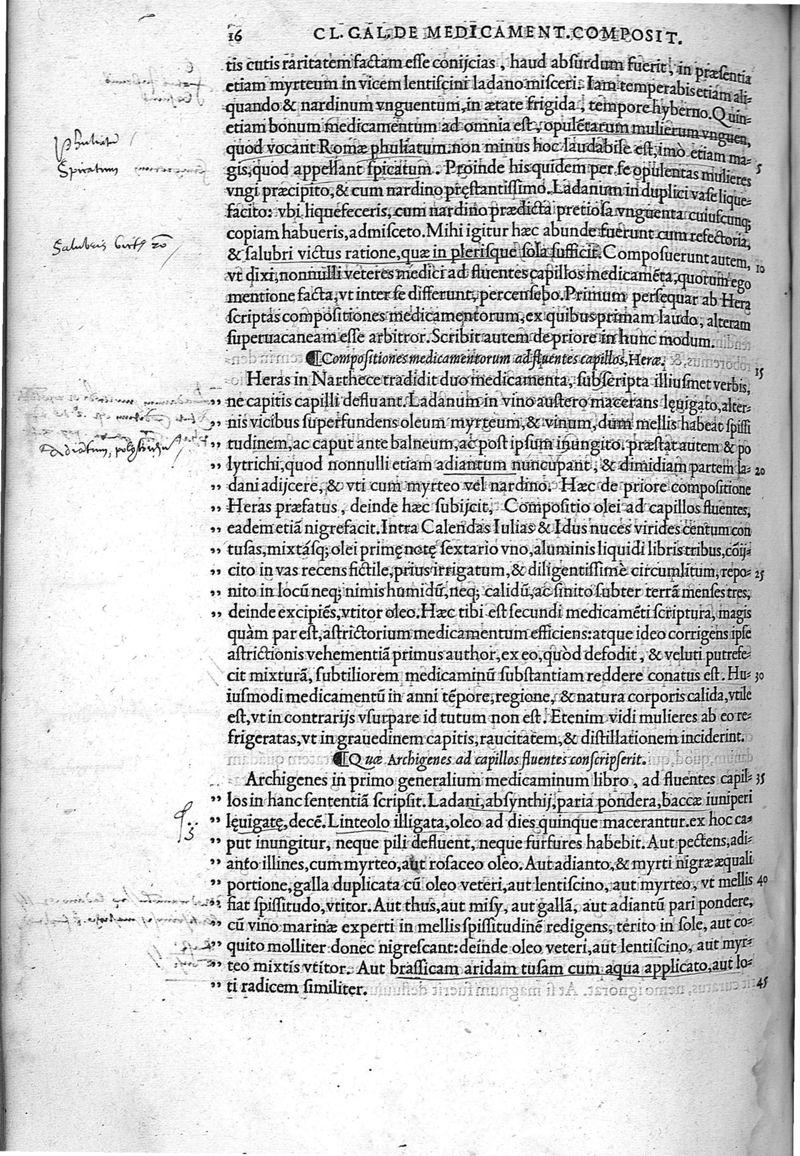 16 CL. GAL. DE MEDICAMENT. COMPOSIT.
tis cutis raritatem factam esse conijcias, haud absurdum fuerit, in præsentia
etiam myrteum in vicem lentiscini ladano misceri. Iam temperabis etiam ali-
quando & nardinum vnguentum, in ætate frigida, tempore hyberno. Quin-
etiam bonum medicamentum ad omnia est, opulẽtarum mulierum vnguen,
quod vocant Romæ phuliatum. non minus hoc laudabile est, imò etiam ma-
gis, quod appellant spicatum. Proinde his quidem per se opulentas mulieres 5
vngi præcipito, & cum nardino pręstantissimo. Ladanum in duplici vase lique-
facito: vbi liquefeceris, cum nardino prædicta pretiosa vnguenta cuiuscunq;
copiam habueris, admisceto. Mihi igitur hæc abunde fuerunt cum refectoria,
& salubri victus ratione, quæ in plerisque sola sufficit. Composuerunt autem, 10
vt dixi, nonnulli veteres medici ad fluentes capillos medicamẽta, quorum ego
mentione facta, vt inter se differunt, percensebo. Primum persequar ab Hera
scriptas compositiones medicamentorum, ex quibus primam laudo, alteram
superuacaneam esse arbitror. Scribit autem de priore in hunc modum.
¶ Compositiones medicamentorum ad fluentes capillos, Heræ. 15
Heras in Narthece tradidit duo medicamenta, subscripta illiusmet verbis,
" ne capitis capilli defluant. Ladanum in vino austero macerans lęnigato, alter-
" nis vicibus superfundens oleum myrteum, & vinum, dum mellis habeat spissi
" tudinem, ac caput ante balneum, ac post ipsum inungito. præstat autem & po
" lytrichi, quod nonnulli etiam adiantum nuncupant, & dimidiam partem la- 20
" dani adijcere, & vti cum myrteo vel nardino. Hæc de priore compositione
" Heras præfatus, deinde hæc subijcit, Compositio olei ad capillos fluentes,
" eadem etiã nigrefacit. Intra Calendas Iulias & Idus nuces virides centum con
" tusas, mixtásq; olei primę notę sextario vno, aluminis liquidi libris tribus, cõij-
" cito in vas recens fictile, prius irrigatum, & diligentissimè circumlitum, repo- 25
" nito in locũ neq; nimis humidũ, neq; calidũ, ac sinito subter terrã menses tres,
" deinde excipiẽs, vtitor oleo. Hæc tibi est secundi medicamẽti scriptura, magis
quàm par est, astrictorium medicamentum efficiens: atque ideo corrigens ipse
astrictionis vehementiã primus author, ex eo, quòd defodit, & veluti putrefe-
cit mixturã, subtiliorem medicaminũ substantiam reddere conatus est. Hu- 30
iusmodi medicamentũ in anni tẽpore, regione, & natura corporis calida, vtile
est, vt in contrarijs vsurpare id tutum non est. Etenim vidi mulieres ab eo re-
frigeratas, vt in grauedinem capitis, raucitatem, & distillationem inciderint.
¶ Quæ Archigenes ad capillos fluentes conscripserit.
Archigenes in primo generalium medicaminum libro, ad fluentes capil- 35
" los in hanc sententiã scripsit. Ladani, absynthij, paria pondera, baccæ iuniperi
" lęuigatę, decẽ. Linteolo illigata, oleo ad dies quinque macerantur. ex hoc ca-
" put inungitur, neque pili defluent, neque furfures habebit. Aut pectens, adi-
" anto illines, cum myrteo, aut rosaceo oleo. Aut adianto, & myrti nigræ æquali
" portione, galla duplicata cũ oleo veteri, aut lentiscino, aut myrteo, vt mellis 40
" fiat spissitudo, vtitor. Aut thus, aut misy, aut gallã, aut adiantũ pari pondere,
" cũ vino marinæ experti in mellis spissitudinẽ redigens, terito in sole, aut co-
" quito molliter donec nigrescant: deinde oleo veteri, aut lentiscino, aut myr-
" teo mixtis vtitor. Aut brassicam aridam tusam cum aqua applicato, aut lo-
" ti radicem similiter. 45
phuliatũ
Spicatum